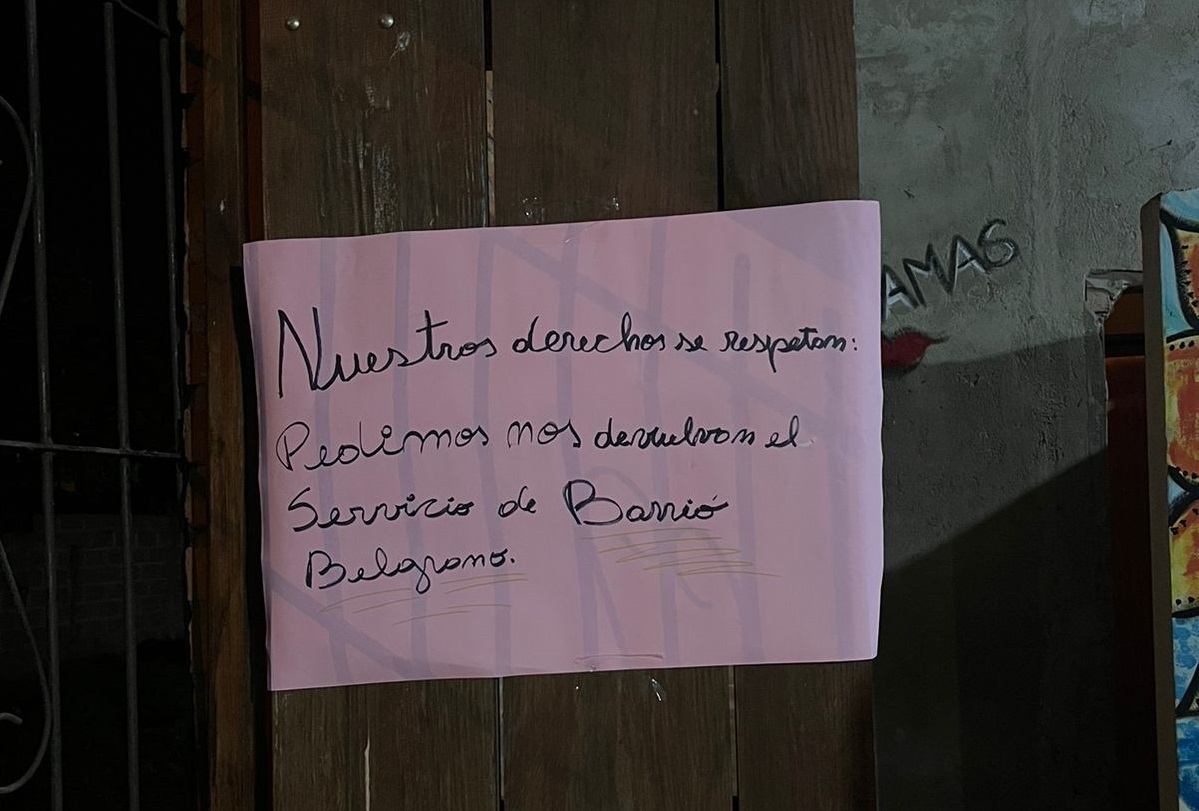 Nuestros derechos se respetan:
Pedimos nos devuelvan el
Servicio de Barrió
Belgrano.
AMAS